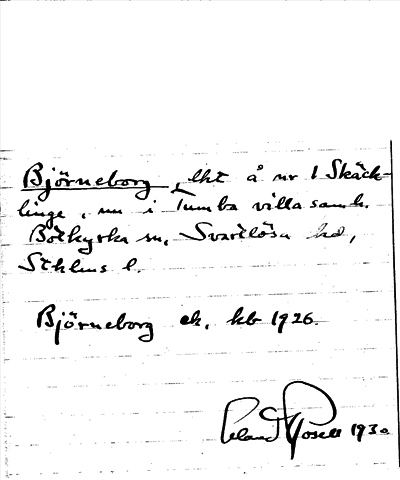 Björneborg, lht å nr 1 Skäck-
linge, nu i Tumba villasamh.
Botkyrka sn, Svartlösa hd,
Sthlms l.
Björneborg ek. kb 1926.
Rosell 1930